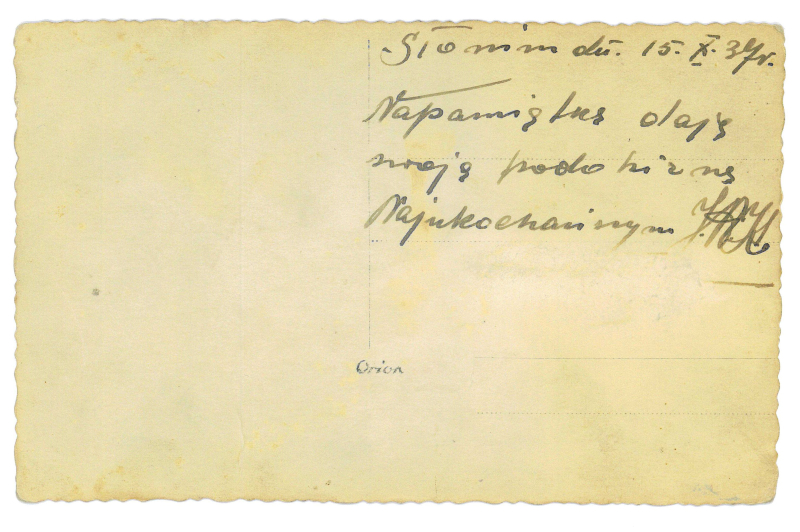 Słonim dn. 15. X. 37r.
Napamiątkę daję
swoją podobiznę
Najukochańszym
Orion